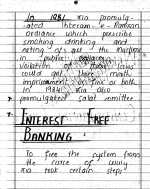 In 1981 Zia promulg-
-ated Ehteram-e-Ramzan
ordiance which prescribe
smoking drinking and
eating of all the Muslims
in public
violation of these laws
could get three month
imprisonment or fine or both
in 1984 Zia also
promulgated salat committee
INTEREST FREE
BANKING:
To free the system from
the curse of usury
Zia took certain steps